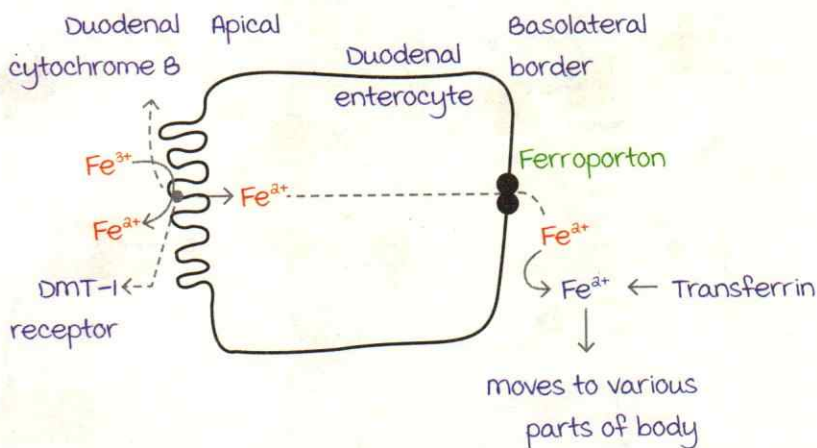 Duodenal
cytochrome B
Apical
Duodenal
enterocyte
Basolateral
border
Fe³⁺
Fe²⁺
Fe²⁺
Ferroporton
Fe²⁺
DMT-1
receptor
Fe²⁺
Transferrin
moves to various
parts of body